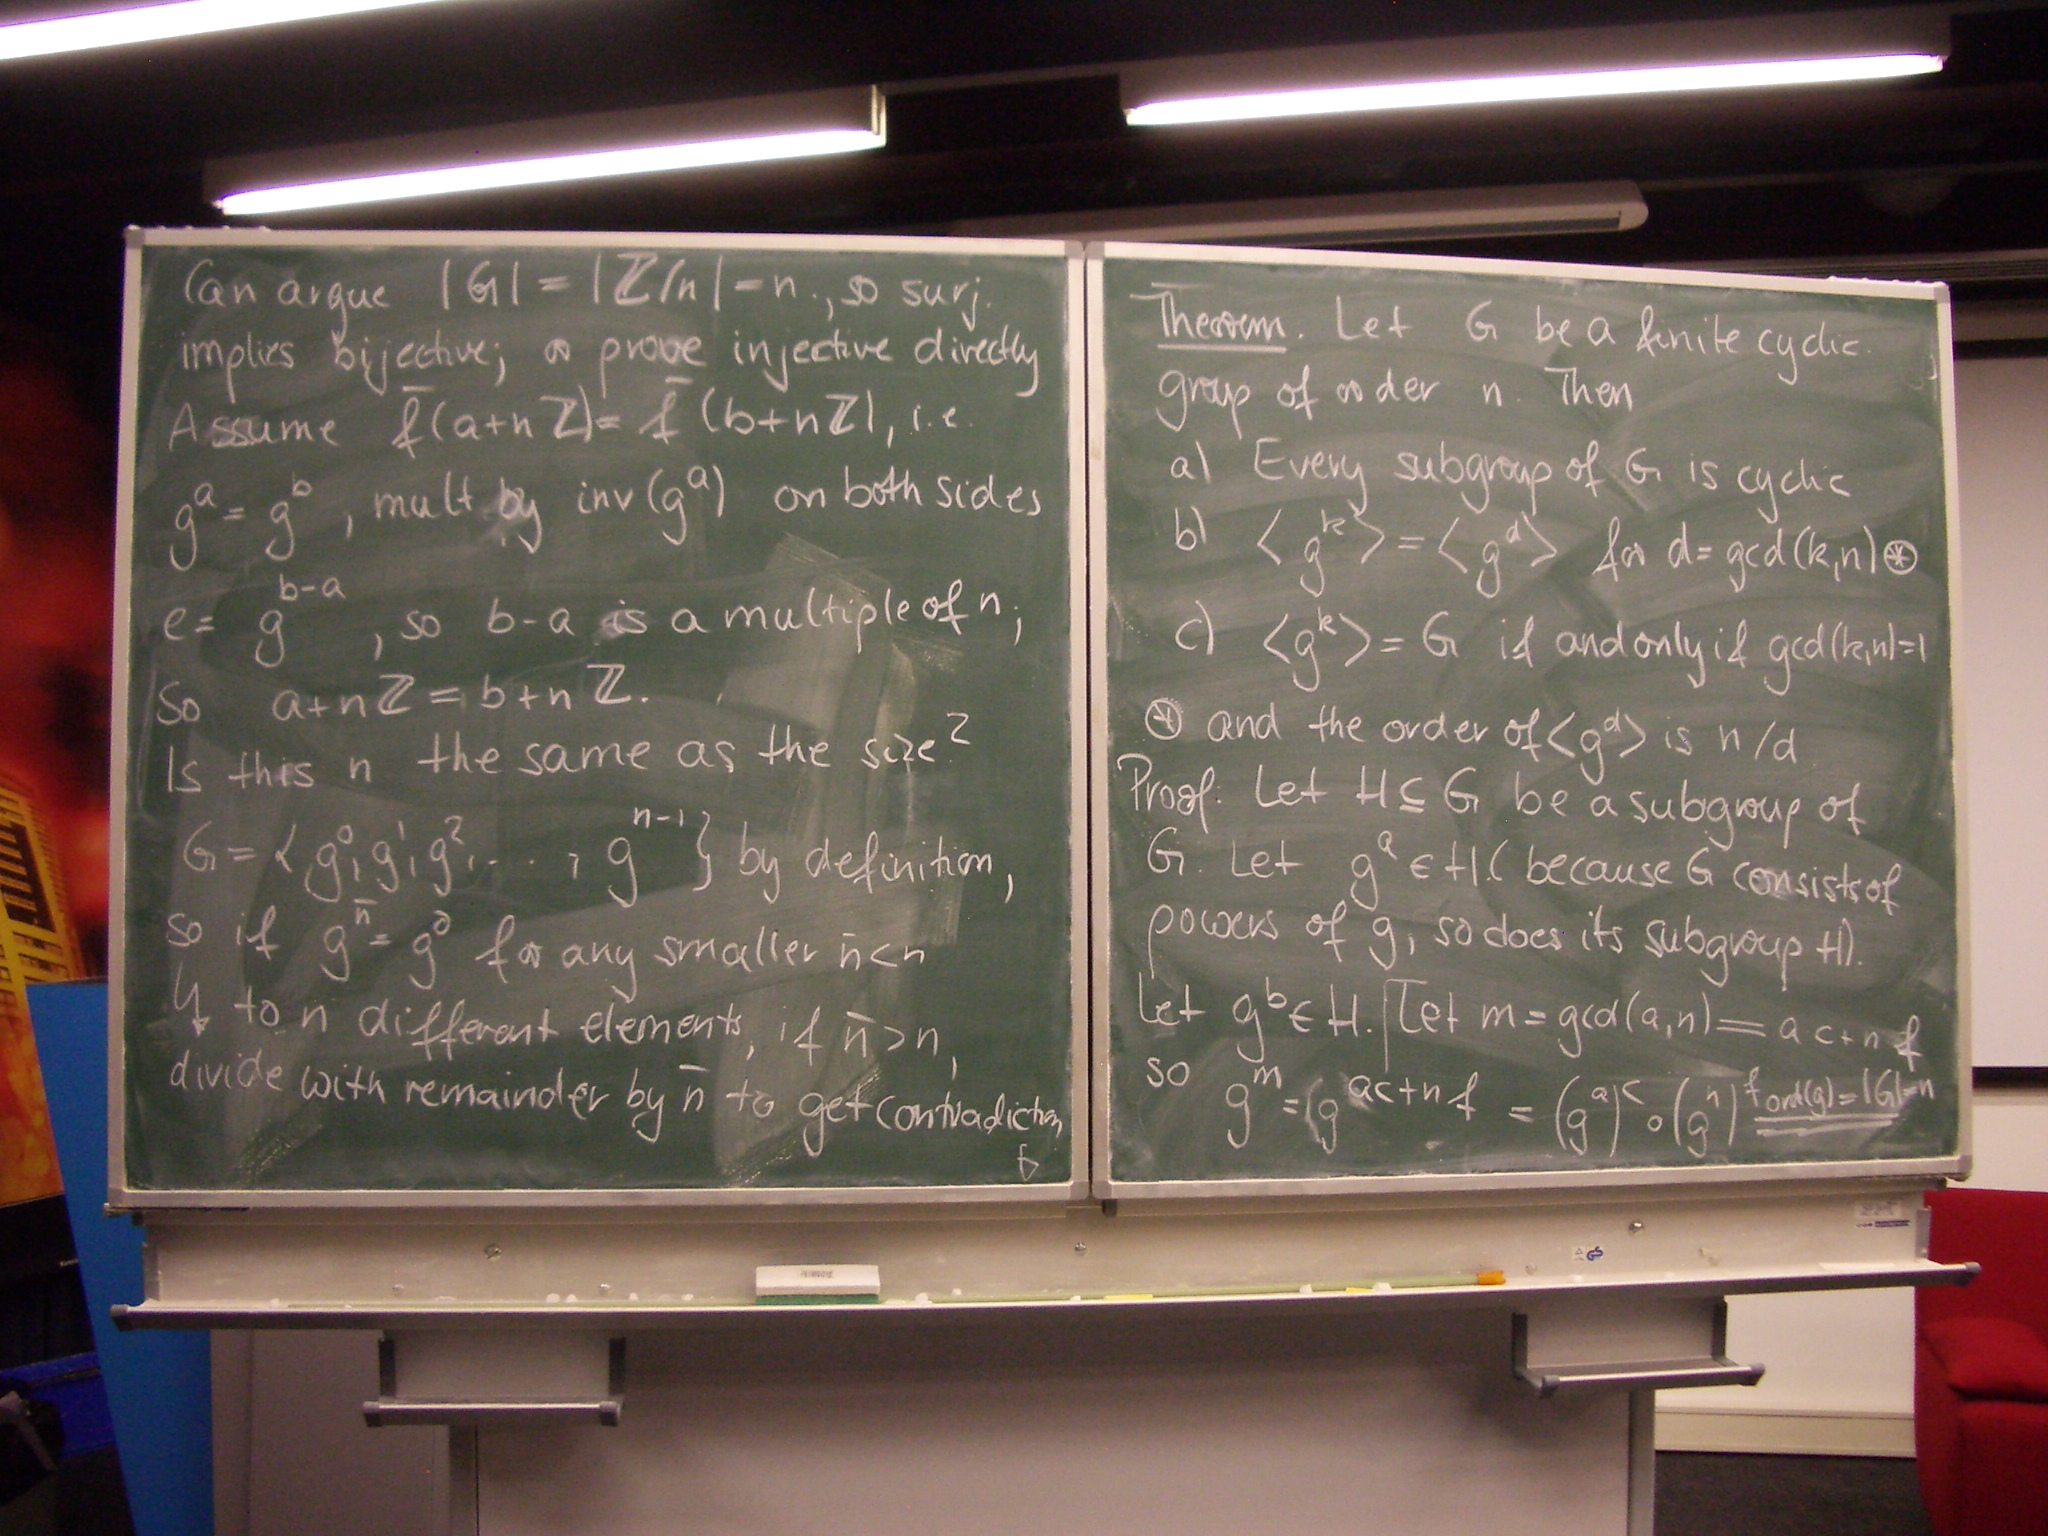 Can argue |G| = |ℤ/n| = n, so surj.
implies bijective; or prove injective directly
Assume f̄(a+nℤ) = f̄(b+nℤ), i.e.
g^a = g^b, mult by inv(g^a) on both sides
e = g^{b-a}, so b-a is a multiple of n;
So a+nℤ = b+nℤ.
Is this n the same as the size?
G = { g^0, g^1, g^2, ..., g^{n-1} } by definition,
so if g^{n̄} = g^0 for any smaller n̄ < n
↯ to n different elements, if n̄ > n,
divide with remainder by n̄ to get contradiction
Theorem. Let G be a finite cyclic
group of order n. Then
a) Every subgroup of G is cyclic
b) <g^k> = <g^d> for d = gcd(k,n) ⊛
c) <g^k> = G if and only if gcd(k,n)=1
⊛ and the order of <g^d> is n/d
Proof: Let H ⊆ G be a subgroup of
G. Let g^a ∈ H. (because G consists of
powers of g, so does its subgroup H).
Let g^b ∈ H. | Let m = gcd(a,n) = ac+nf
so g^m = (g^{ac+nf} = (g^a)^c ∘ (g^n)^f ord(g) = |G| = n